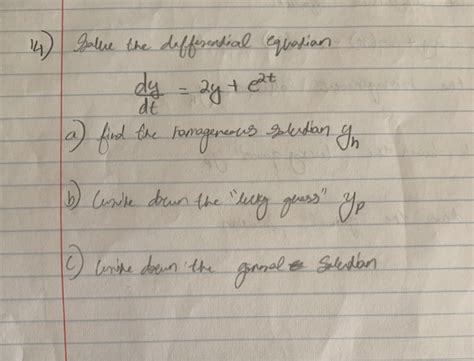 14) Solve the differential equation
dy/dt = 2y + e^2t
a) find the homogeneous solution y_h
b) write down the "lucky guess" y_p
c) write down the general solution